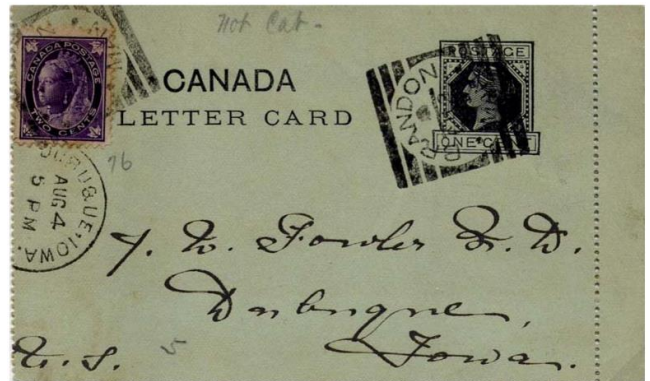 Not Cat.
CANADA POSTAGE
TWO CENTS
CANADA
LETTER CARD
POSTAGE
ONE C
BRANDON
76
DUBUQUE, IOWA.
AUG 4
5 PM
J. W. Fowler M. D.
Dubuque,
Iowa.
U. S.
5